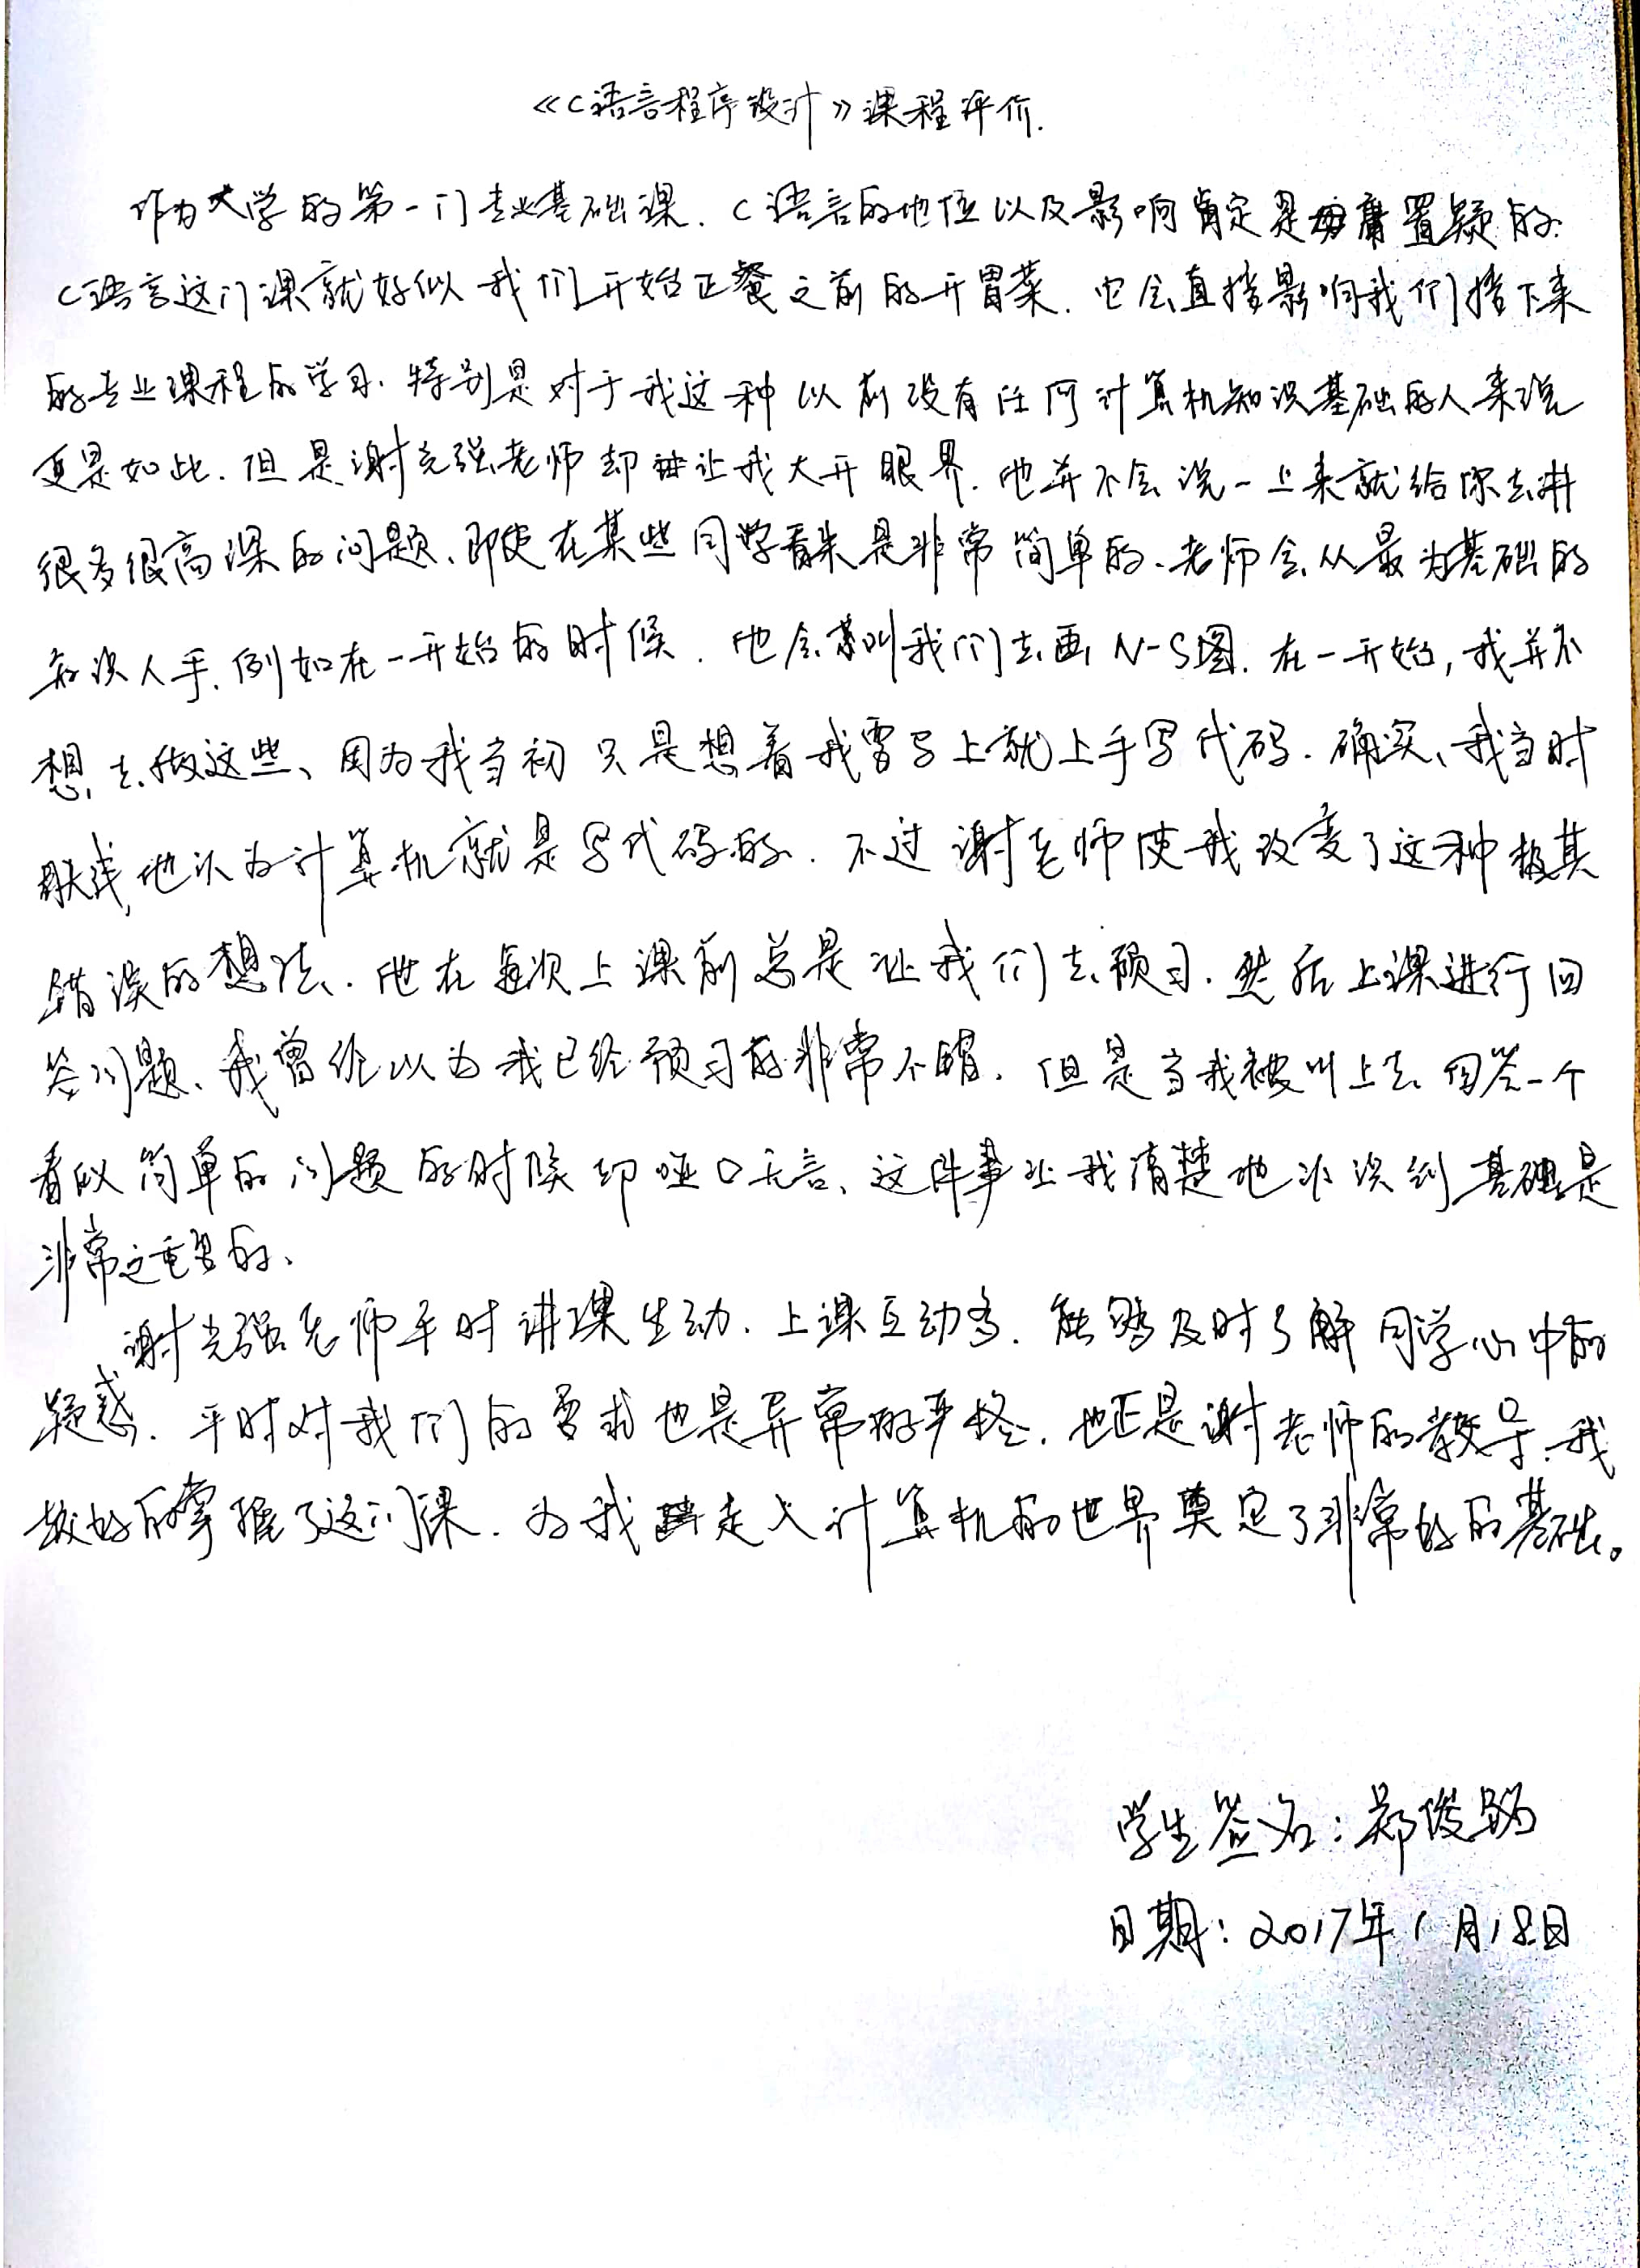 《C语言程序设计》课程评价.
作为大学的第一门专业基础课.C语言的地位以及影响肯定是毋庸置疑的.
C语言这门课就好似我们开始正餐之前的开胃菜.它会直接影响我们接下来
的专业课程的学习.特别是对于我这种以前没有任何计算机知识基础的人来说
更是如此.但是谢老师却让我大开眼界.他并不会说一上来就给你去讲
很多很高深的问题、即使在某些同学看来是非常简单的、老师会从最为基础的
知识入手.例如在一开始的时候.他会叫我们去画N-S图.在一开始,我并不
想去做这些、因为我当初只是想着我要马上就上手写代码.确实、我当时
肤浅地认为计算机就是写代码的.不过谢老师使我改变了这种极其
错误的想法.他在每次上课前总是让我们去预习.然后上课进行回
答问题、我曾经以为我已经预习的非常不错.但是当我被叫上去回答一个
看似简单的问题的时候却哑口无言、这件事让我清楚地认识到基础是
非常之重要的、
谢老师平时讲课生动.上课互动多.能够及时了解同学心中的
疑惑.平时对我们的要求也是异常的严格.也正是谢老师的教导.我
较好的掌握了这门课.为我走入计算机的世界奠定了非常好的基础。
学生签名:郑俊
日期:2017年1月18日